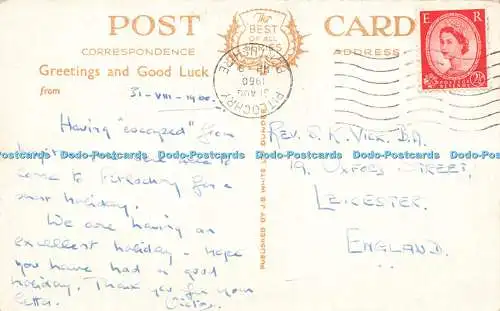 POST CARD
The
BEST
OF ALL
SERIES
CORRESPONDENCE
ADDRESS
Greetings and Good Luck
from
31-VIII-1960
PITLOCHRY
PERTHSHIRE
31 AUG
1960
E R
2½D
Having "escaped" from
come to Pitlochry for a
holiday.
We are having an
excellent holiday - hope
you have had a good
holiday. Thank you for your
letter.
PUBLISHED BY J.B. WHITE DUNDEE
Rev. S. K. Vick. B.A.
19, Oxford Street,
Leicester.
England.
Dodo-Postcards Dodo-Postcards Dodo-Postcards Dodo-Postcards Dodo-Postcards Dodo-Postcards